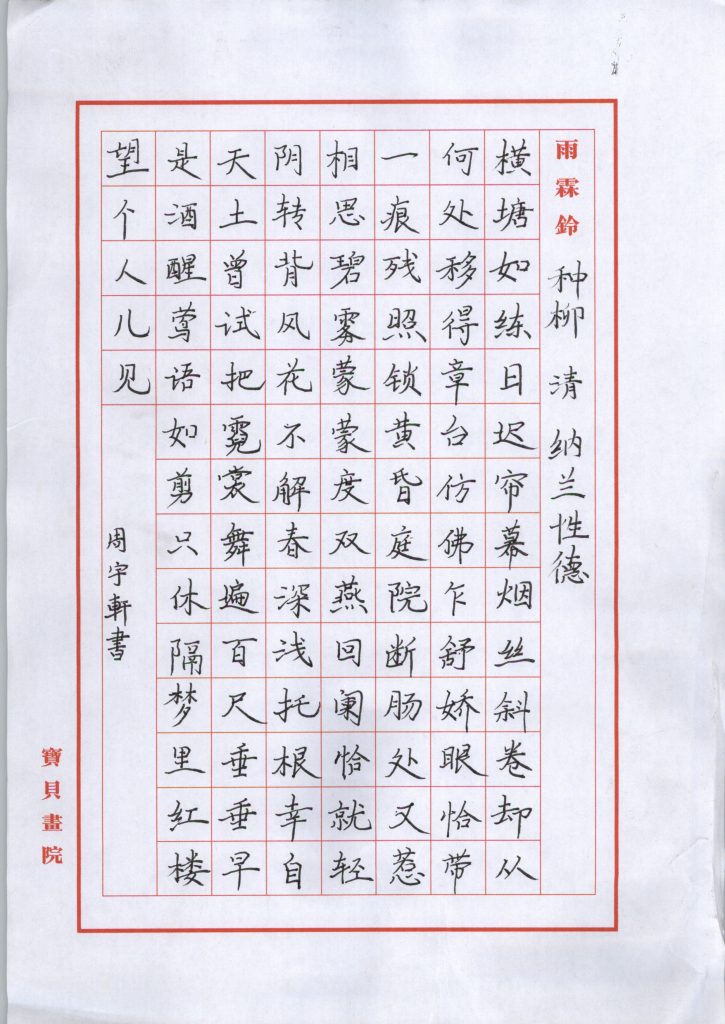 雨霖鈴 种柳 清 纳兰性德
横塘如练日迟帘幕烟丝斜卷却从
何处移得章台仿佛乍舒娇眼恰带
一痕残照锁黄昏庭院断肠处又惹
相思碧雾蒙蒙度双燕回阑恰就轻
阴转背风花不解春深浅托根幸自
天土曾试把霓裳舞遍百尺垂垂早
是酒醒莺语如剪只休隔梦里红楼
望个人儿见
周宇軒書
寶貝畫院